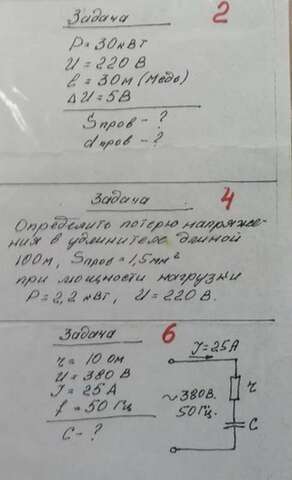 Задача 2
P = 30 кВт
U = 220 В
ℓ = 30 м (Медь)
ΔU = 5 В
Sпров - ?
dпров - ?
Задача 4
Определить потерю напряже-
ния в удлинителе длиной
100м, Sпров = 1,5мм²
при мощности нагрузки
P = 2,2 кВт, U = 220 В.
Задача 6
r = 10 ом
U = 380 В
J = 25 А
f = 50 Гц
C - ?
J = 25 А
~380В.
50Гц.
r
C